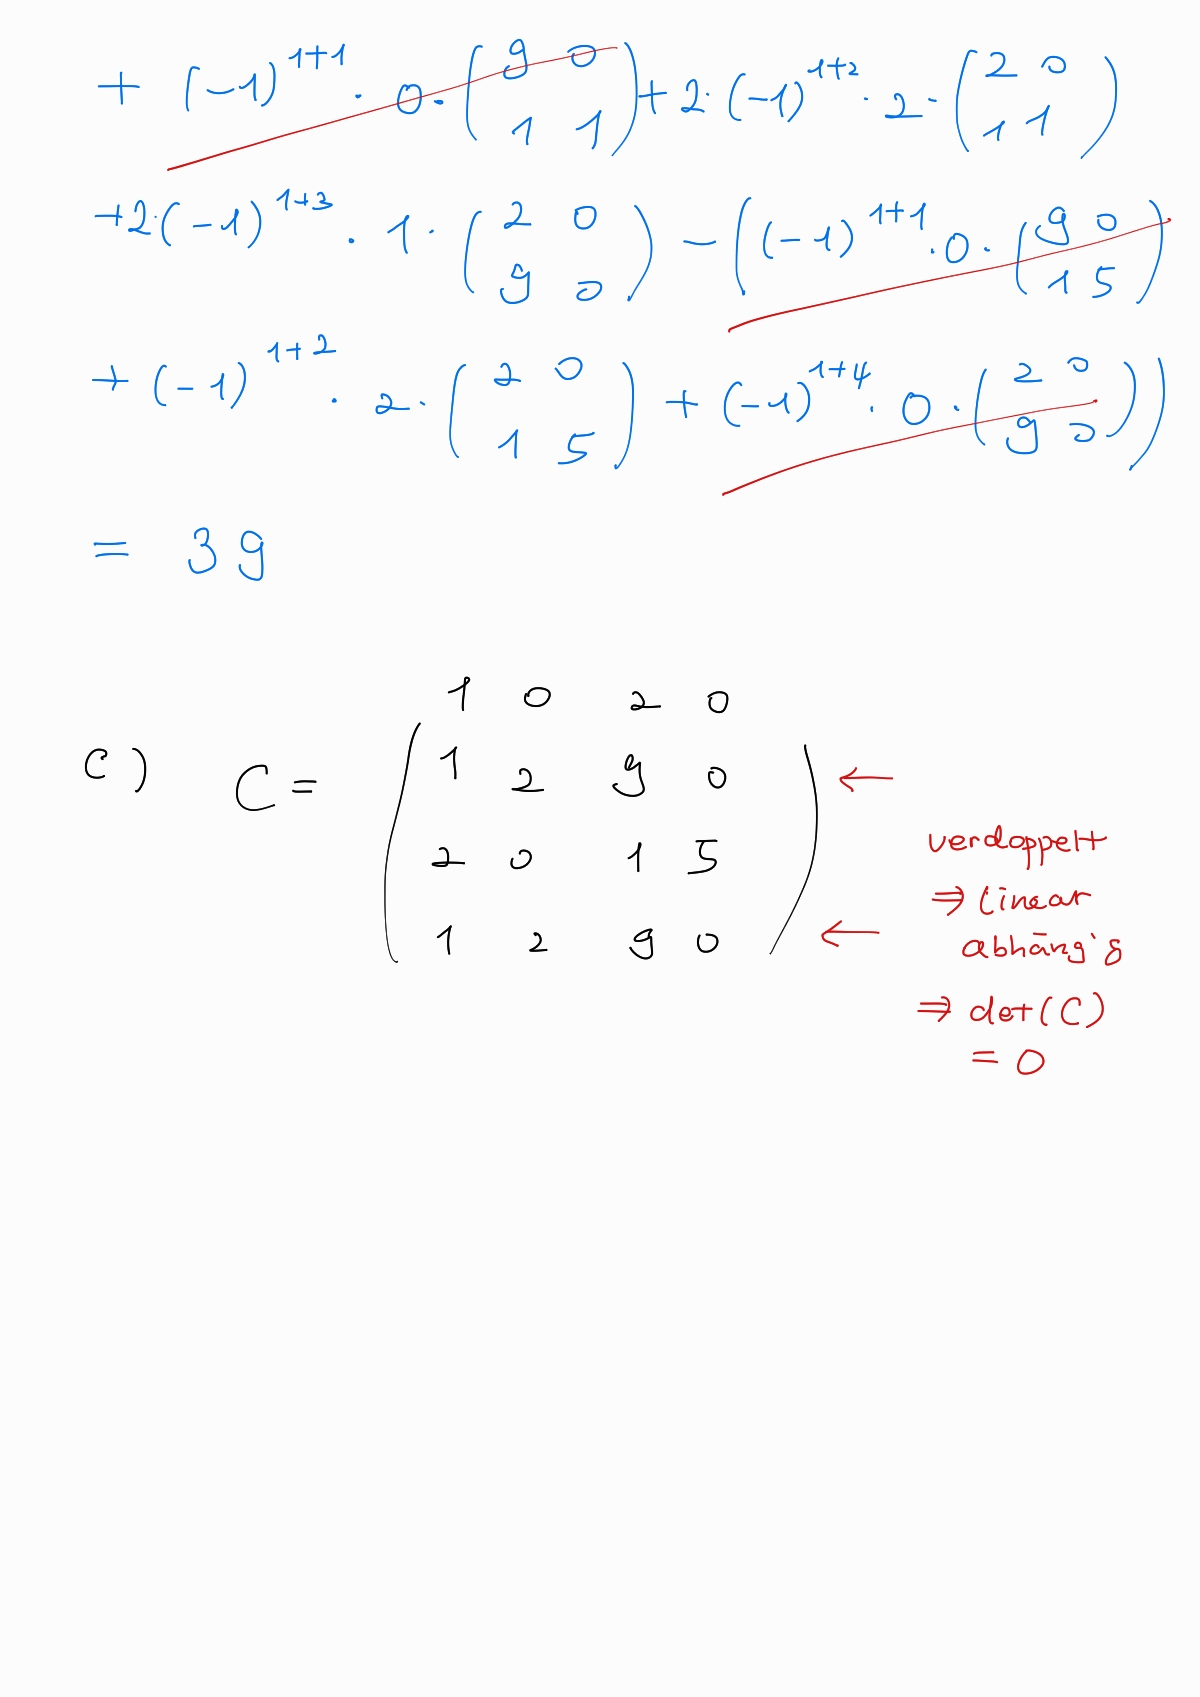 + (-1)^{1+1} · 0 · (9 0
1 1) + 2 · (-1)^{1+2} · 2 · (2 0
1 1)
+2·(-1)^{1+3} · 1 · (2 0
9 0) - ((-1)^{1+1} · 0 · (9 0
1 5)
+ (-1)^{1+2} · 2 · (2 0
1 5) + (-1)^{1+4} · 0 · (2 0
9 0))
= 39
1 0 2 0
c) C = (1 2 9 0 ←
2 0 1 5
1 2 9 0) ←
verdoppelt
⇒ linear
abhängig
⇒ det(C)
= 0